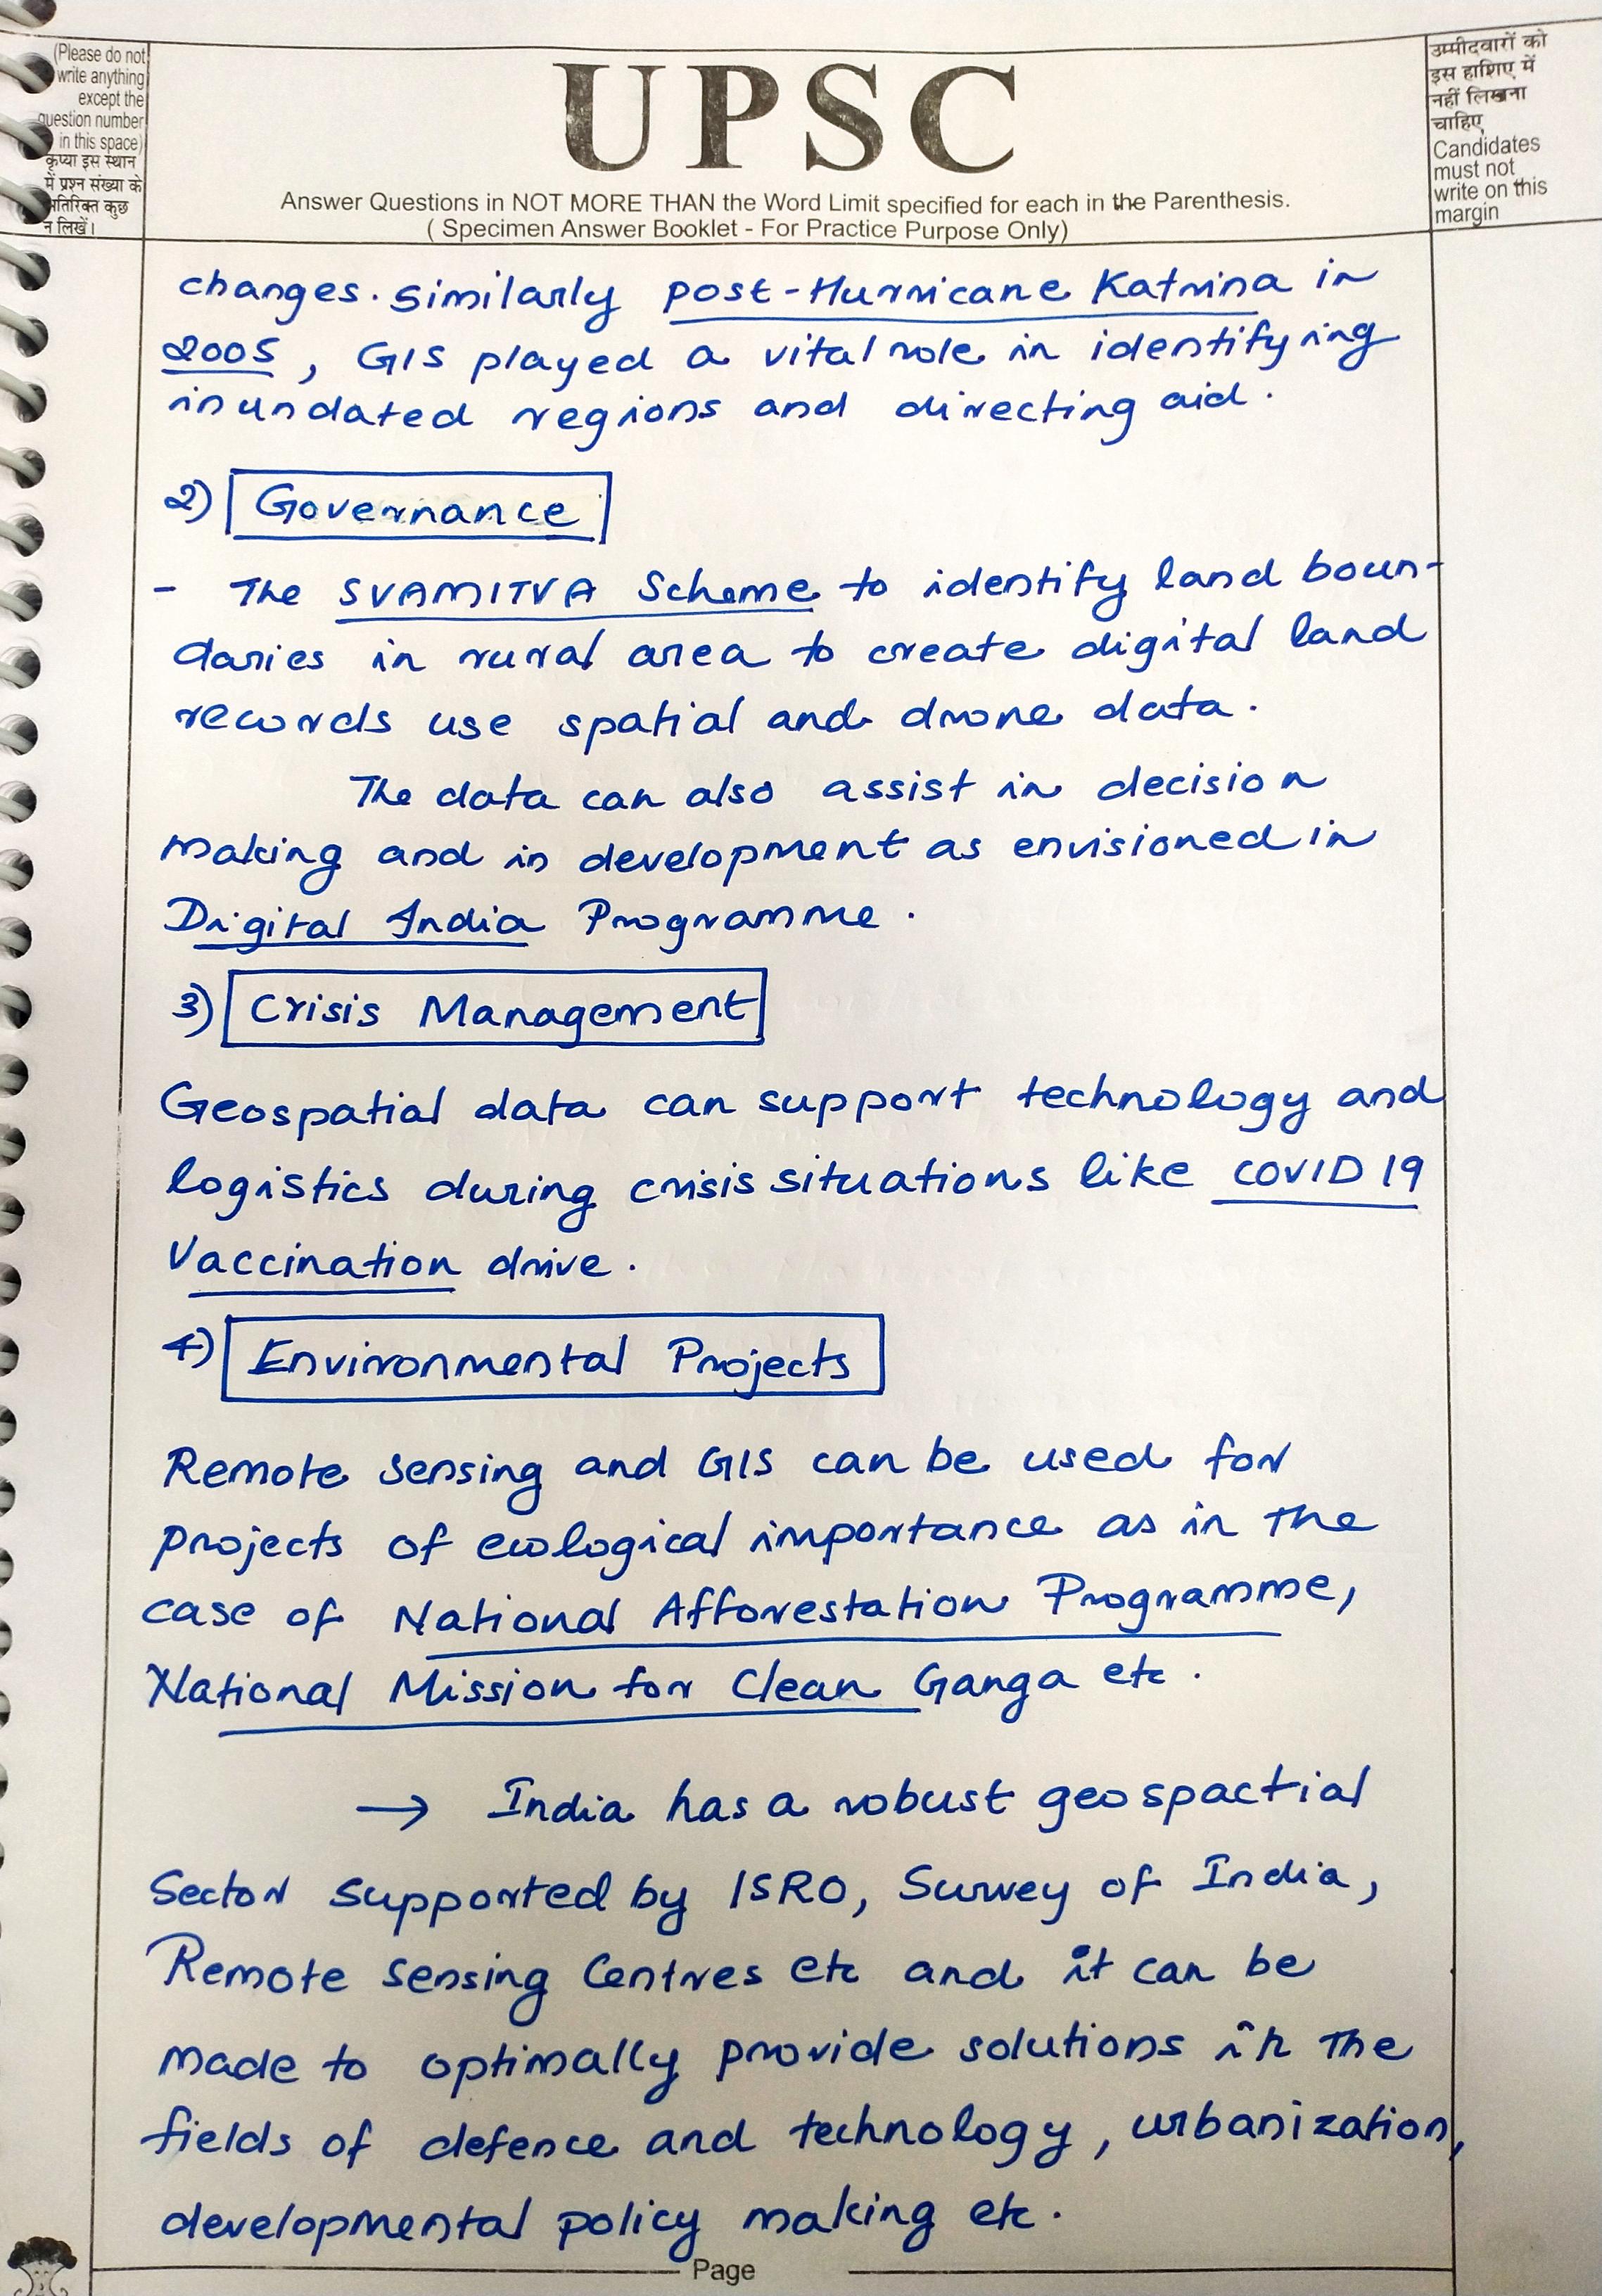 (Please do not
write anything
except the
question number
in this space)
कृप्या इस स्थान
में प्रश्न संख्या के
अतिरिक्त कुछ
न लिखें।
UPSC
Answer Questions in NOT MORE THAN the Word Limit specified for each in the Parenthesis.
( Specimen Answer Booklet - For Practice Purpose Only)
उम्मीदवारों को
इस हाशिए में
नहीं लिखना
चाहिए
Candidates
must not
write on this
margin
changes. Similarly post-Hurricane Katrina in
2005, GIS played a vital role in identifying
inundated regions and directing aid.
2) Governance
- The SVAMITVA Scheme to identify land boun-
daries in rural area to create digital land
records use spatial and drone data.
The data can also assist in decision
making and in development as envisioned in
Digital India Programme.
3) Crisis Management
Geospatial data can support technology and
logistics during crisis situations like COVID 19
Vaccination drive.
4) Environmental Projects
Remote sensing and GIS can be used for
projects of ecological importance as in the
case of National Afforestation Programme,
National Mission for Clean Ganga etc.
→ India has a robust geospactial
Sector supported by ISRO, Survey of India,
Remote sensing Centres etc and it can be
made to optimally provide solutions in the
fields of defence and technology, urbanization,
developmental policy making etc.
Page